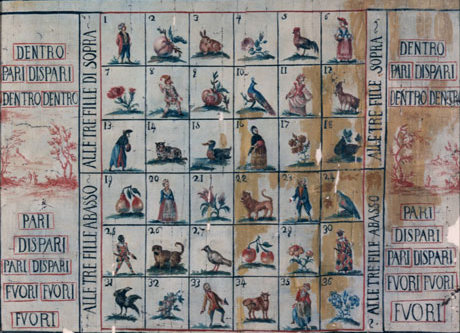 DENTRO
PARI DISPARI
DENTRO DENTRO
PARI
DISPARI
PARI DISPARI
FVORI FVORI
FVORI
ALLE TRE FILLE DI SOPRA~
~ALLE TRE FILLE ABASSO~
1 2 3 4 5 6
7 8 9 10 11 12
13 14 15 16 17 18
19 20 21 22 23 24
25 26 27 28 29 30
31 32 33 34 35 36
ALLE TRE FILLE SOPRA~
~ALLE TRE FILE ABASSO
DENTRO
PARI DISPARI
DENTRO DENTR
PARI
DISPARI
PARI DISPARI
FVORI FVORI
FVORI